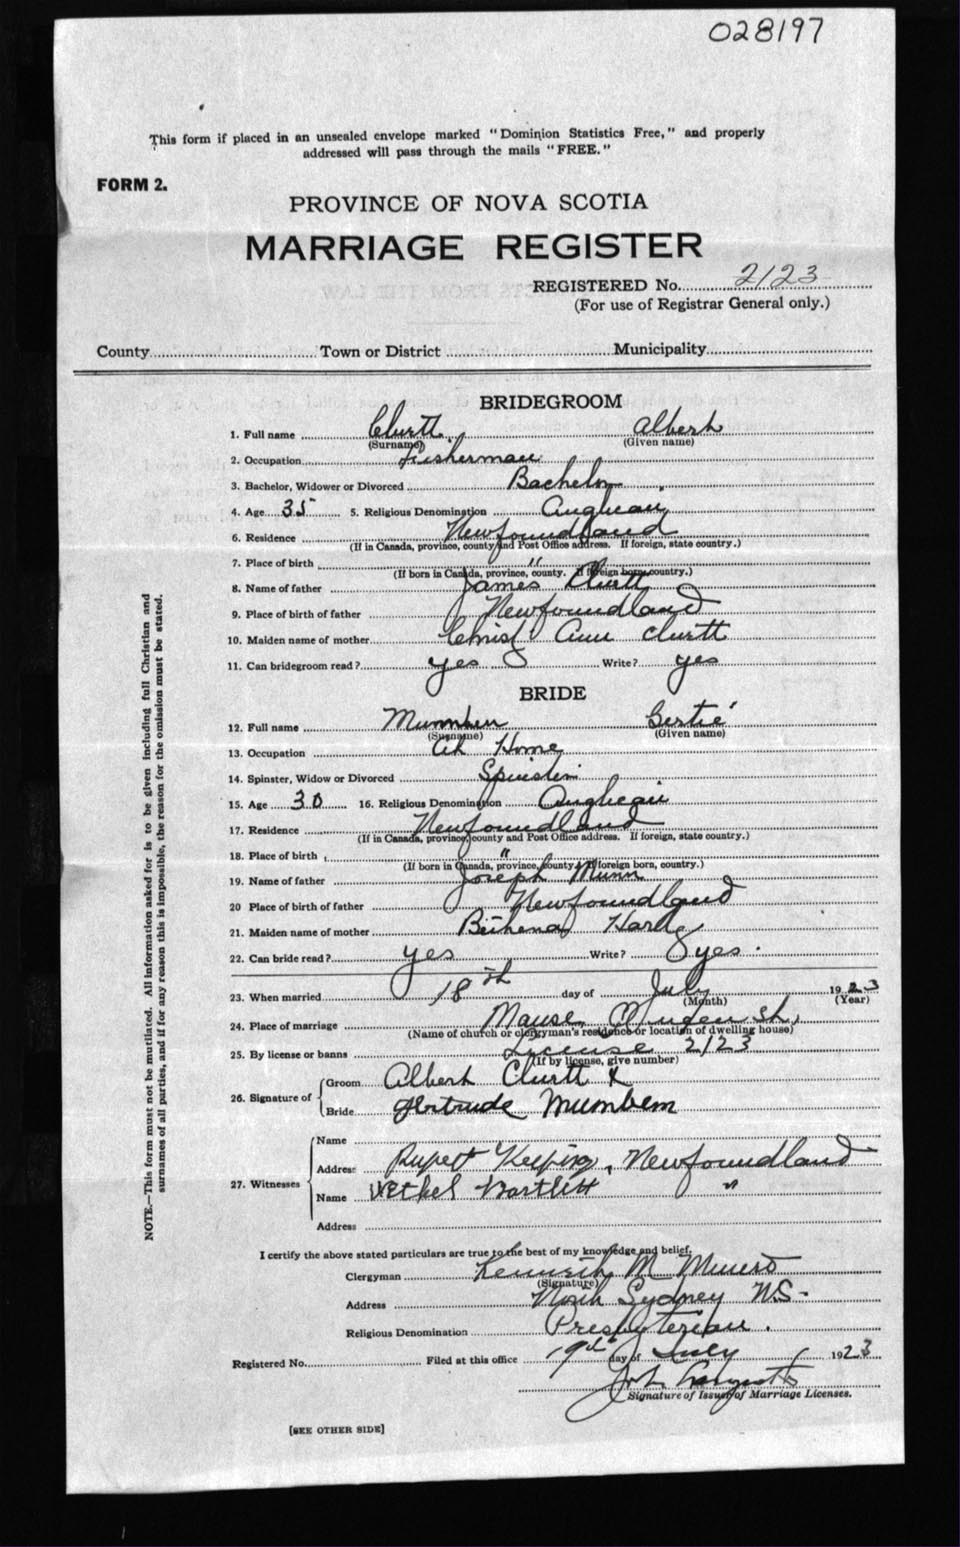 028197
This form if placed in an unsealed envelope marked "Dominion Statistics Free," and properly
addressed will pass through the mails "FREE."
FORM 2.
PROVINCE OF NOVA SCOTIA
MARRIAGE REGISTER
REGISTERED No. 2123
(For use of Registrar General only.)
County Town or District Municipality
BRIDEGROOM
1. Full name Clurtt Albert
(Surname) (Given name)
2. Occupation Fisherman
3. Bachelor, Widower or Divorced Bachelor
4. Age 35 5. Religious Denomination Anglican
6. Residence Newfoundland
(If in Canada, province, county and Post Office address. If foreign, state country.)
7. Place of birth "
(If born in Canada, province, county. If foreign born, country.)
8. Name of father James Clurtt
9. Place of birth of father Newfoundland
10. Maiden name of mother Ann Clurtt
11. Can bridegroom read? yes Write? yes
BRIDE
12. Full name Gertie
(Surname) (Given name)
13. Occupation At Home
14. Spinster, Widow or Divorced Spinster
15. Age 30 16. Religious Denomination Anglican
17. Residence Newfoundland
(If in Canada, province, county and Post Office address. If foreign, state country.)
18. Place of birth "
(If born in Canada, province, county. If foreign born, country.)
19. Name of father Joseph Munn
20 Place of birth of father Newfoundland
21. Maiden name of mother Hardy
22. Can bride read? yes Write? yes.
23. When married 18th day of July 1923
(Month) (Year)
24. Place of marriage Manse,
(Name of church or clergyman's residence or location of dwelling house)
25. By license or banns License 2123
(If by license, give number)
26. Signature of Groom Albert Clurtt X
Bride Gertrude Mumbem
27. Witnesses
Name
Address Rupert Keeping, Newfoundland
Name Ethel Bartlett "
Address
I certify the above stated particulars are true to the best of my knowledge and belief.
Clergyman Kenneth M Munro
(Signature)
Address North Sydney N.S.
Religious Denomination Presbyterian.
Registered No. Filed at this office 19th day of July 1923
John
Signature of Issuer of Marriage Licenses.
[SEE OTHER SIDE]
NOTE.—This form must not be mutilated. All information asked for is to be given including full Christian and
surnames of all parties, and if for any reason this is impossible, the reason for the omission must be stated.